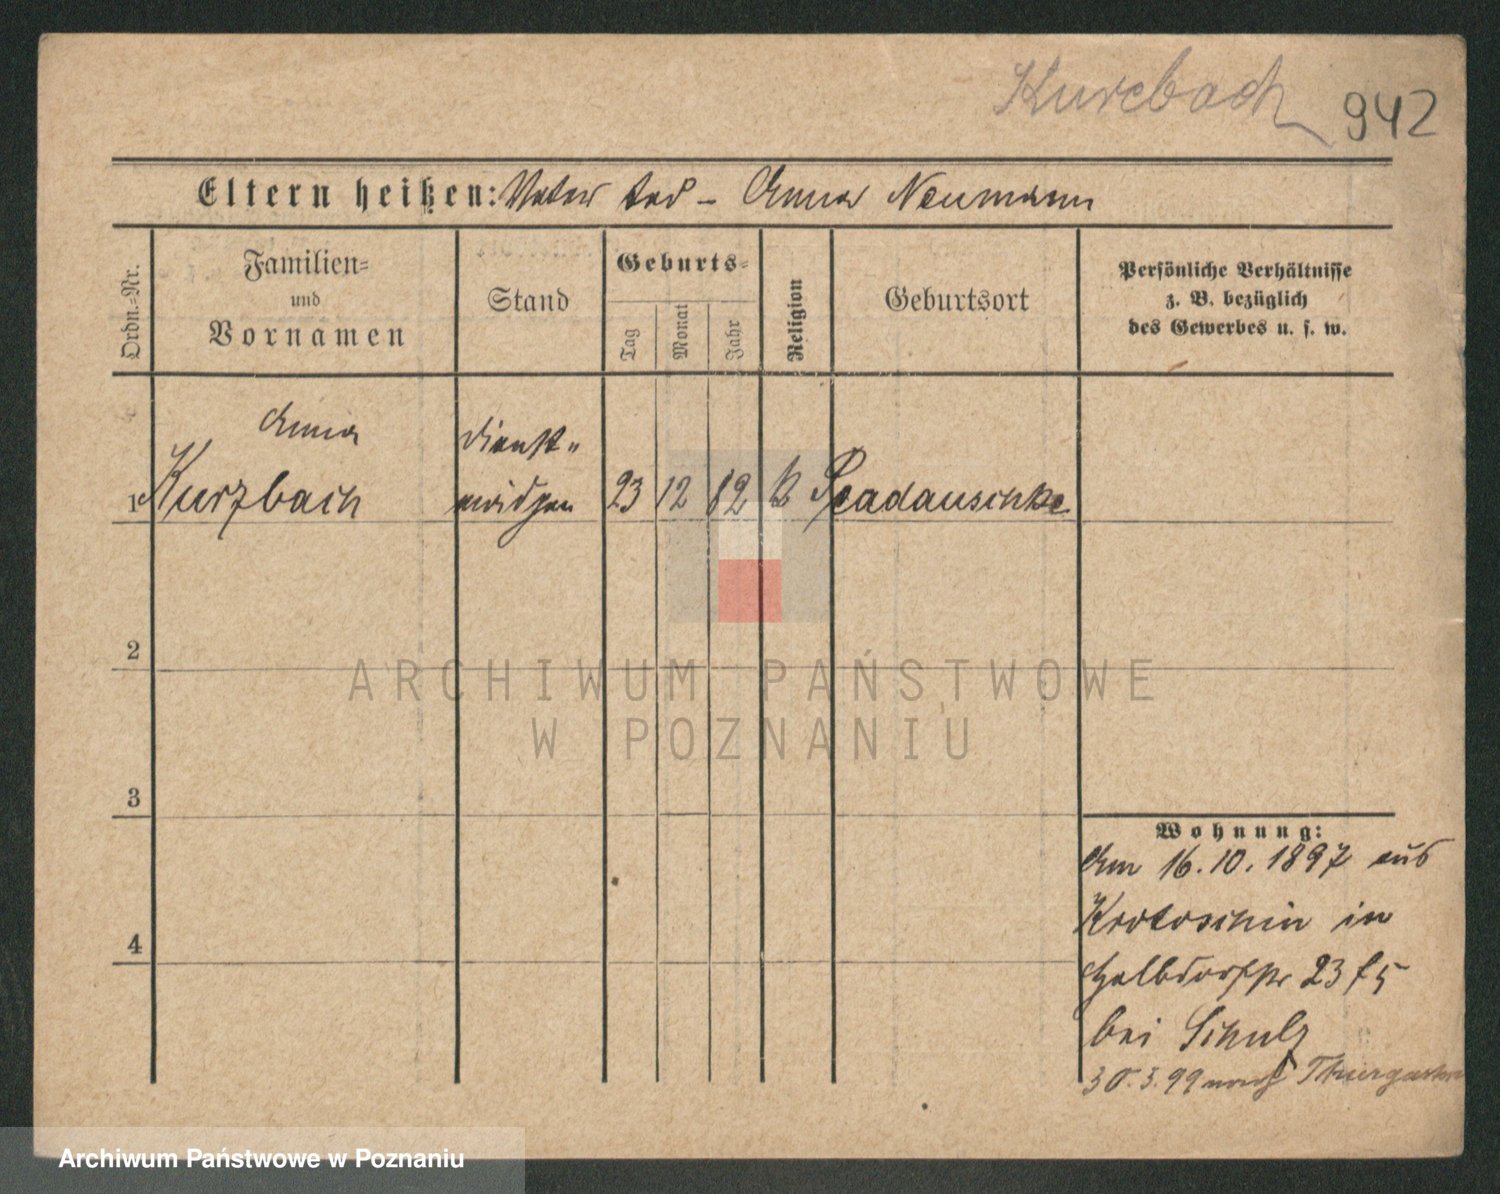 Kurcbach 942
Eltern heißen: Vater tod – Anna Neumann
Ordn.-Nr.
Familien-
und
Vornamen
Stand
Geburts-
Tag
Monat
Jahr
Religion
Geburtsort
Persönliche Verhältnisse
z. B. bezüglich
des Gewerbes u. s. w.
Anna
Dienst-
1 Kurzbach
mädchen
23 12 82 k
2
3
4
Wohnung:
Am 16.10.1897 aus
Krotoschin in
Halbdorfstr 23
bei Schulz
30.3.99 nach
ARCHIWUM PAŃSTWOWE
W POZNANIU
Archiwum Państwowe w Poznaniu